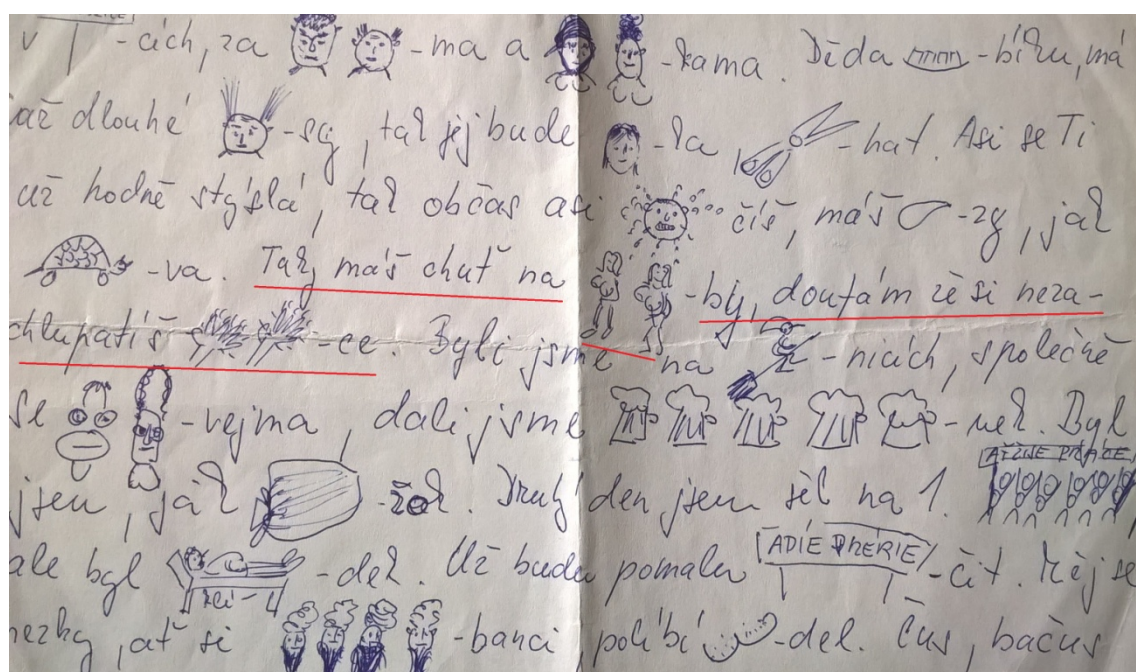 v -cích, za -ma a -kama. Děda -bířu, má
až dlouhé -sy, tak jej bude -la, -hat. Asi se Ti
už hodně stýská, tak občas asi číš, máš -zy, jak
-va. Tak, máš chuť na -by, doufám že si neza-
chlupatíš -ce. Byli jsme na -nicích, společně
se -vejma, dali jsme -nek. Byl
jsem, jak -žok. Druhý den jsem šel na 1.
ale byl -dek. Už budu pomalu ADIE -čit. Měj se
hezky, ať si -banci, políbí -del. Čus, bačus